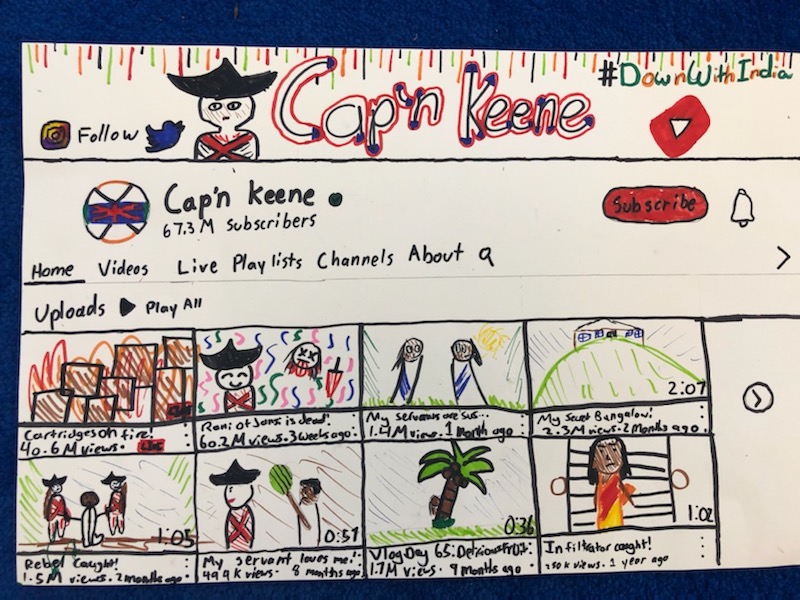 #DownWithIndia
Follow
Cap'n Keene
Cap'n Keene
67.3 M Subscribers
Subscribe
Home Videos Live Playlists Channels About
Uploads Play All
LIVE
2:07
Cartridges on fire!
40.6 M views. LIVE
Rani of Jansi is dead!
60.2 M views. 3 weeks ago.
My servants are sus...
1.4 M views. 1 month ago
My Secret Bungalow!
2.3 M views. 2 months ago
1:05
0:51
0:36
1:02
Rebel Caught!
1.5 M views. 2 months ago
My servant loves me!
494 K views. 8 months ago
Vlog Day 65: Delicious Fruit
1.7 M views. 9 months ago
Infiltrator caught!
250 K views. 1 year ago